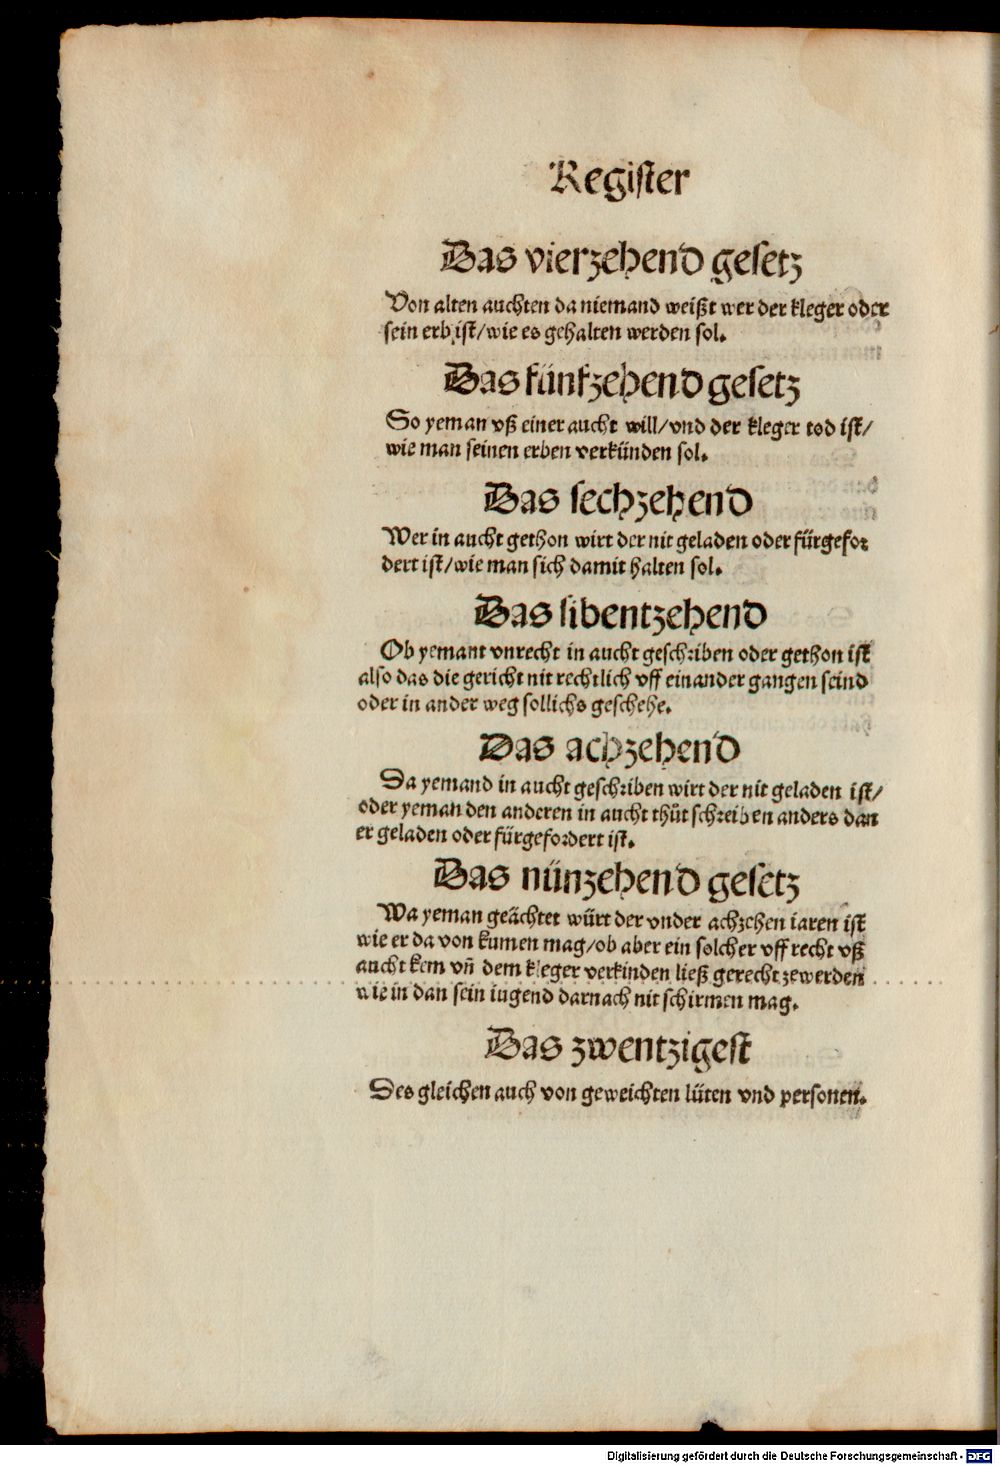 Register
Das vierzehend gesetz
Von alten auchten da niemand weißt wer der kleger oder
sein erb ist/wie es gehalten werden sol.
Das fünfzehend gesetz
So yeman vß einer aucht will/vnd der kleger tod ist/
wie man seinen erben verkünden sol.
Das sechzehend
Wer in aucht gethon wirt der nit geladen oder fürgefor
dert ist/wie man sich damit halten sol.
Das sibentzehend
Ob yemant vnrecht in aucht geschriben oder gethon ist
also das die gericht nit rechtlich vff einander gangen seind
oder in ander weg sollichs geschehe.
Das achzehend
Da yemand in aucht geschriben wirt der nit geladen ist/
oder yeman den anderen in aucht thůt schreiben anders dan
er geladen oder fürgefordert ist.
Das nünzehend gesetz
Wa yeman geächtet würt der vnder achzehen iaren ist
wie er da von kumen mag/ob aber ein solcher vff recht vß
aucht kem vñ dem kleger verkinden ließ gerecht zewerden
wie in dan sein iugend darnach nit schirmen mag.
Das zwentzigest
Des gleichen auch von geweichten lüten vnd personen.
Digitalisierung gefördert durch die Deutsche Forschungsgemeinschaft - DFG